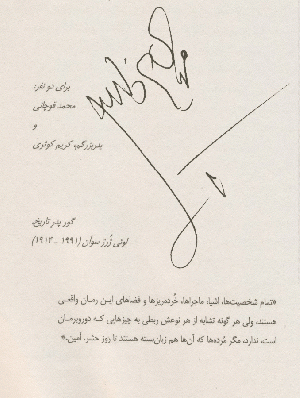 برای دو نفر:
محمد قوچانی
و
پدربزرگم، کریم کوثری
گور پدر تاریخ.
لویی ژرژ سوان (۱۹۹۱ - ۱۹۱۴)
«تمام شخصیت‌ها، اشیا، ماجراها، خُرده‌ریزها و فضاهای این رمان واقعی
هستند، ولی هر گونه تشابه از هر نوعش ربطی به چیزهایی که دوروبرمان
است، ندارد، مگر مُرده‌ها که آن‌ها هم زبان‌بسته هستند تا روز حشر، آمین.»